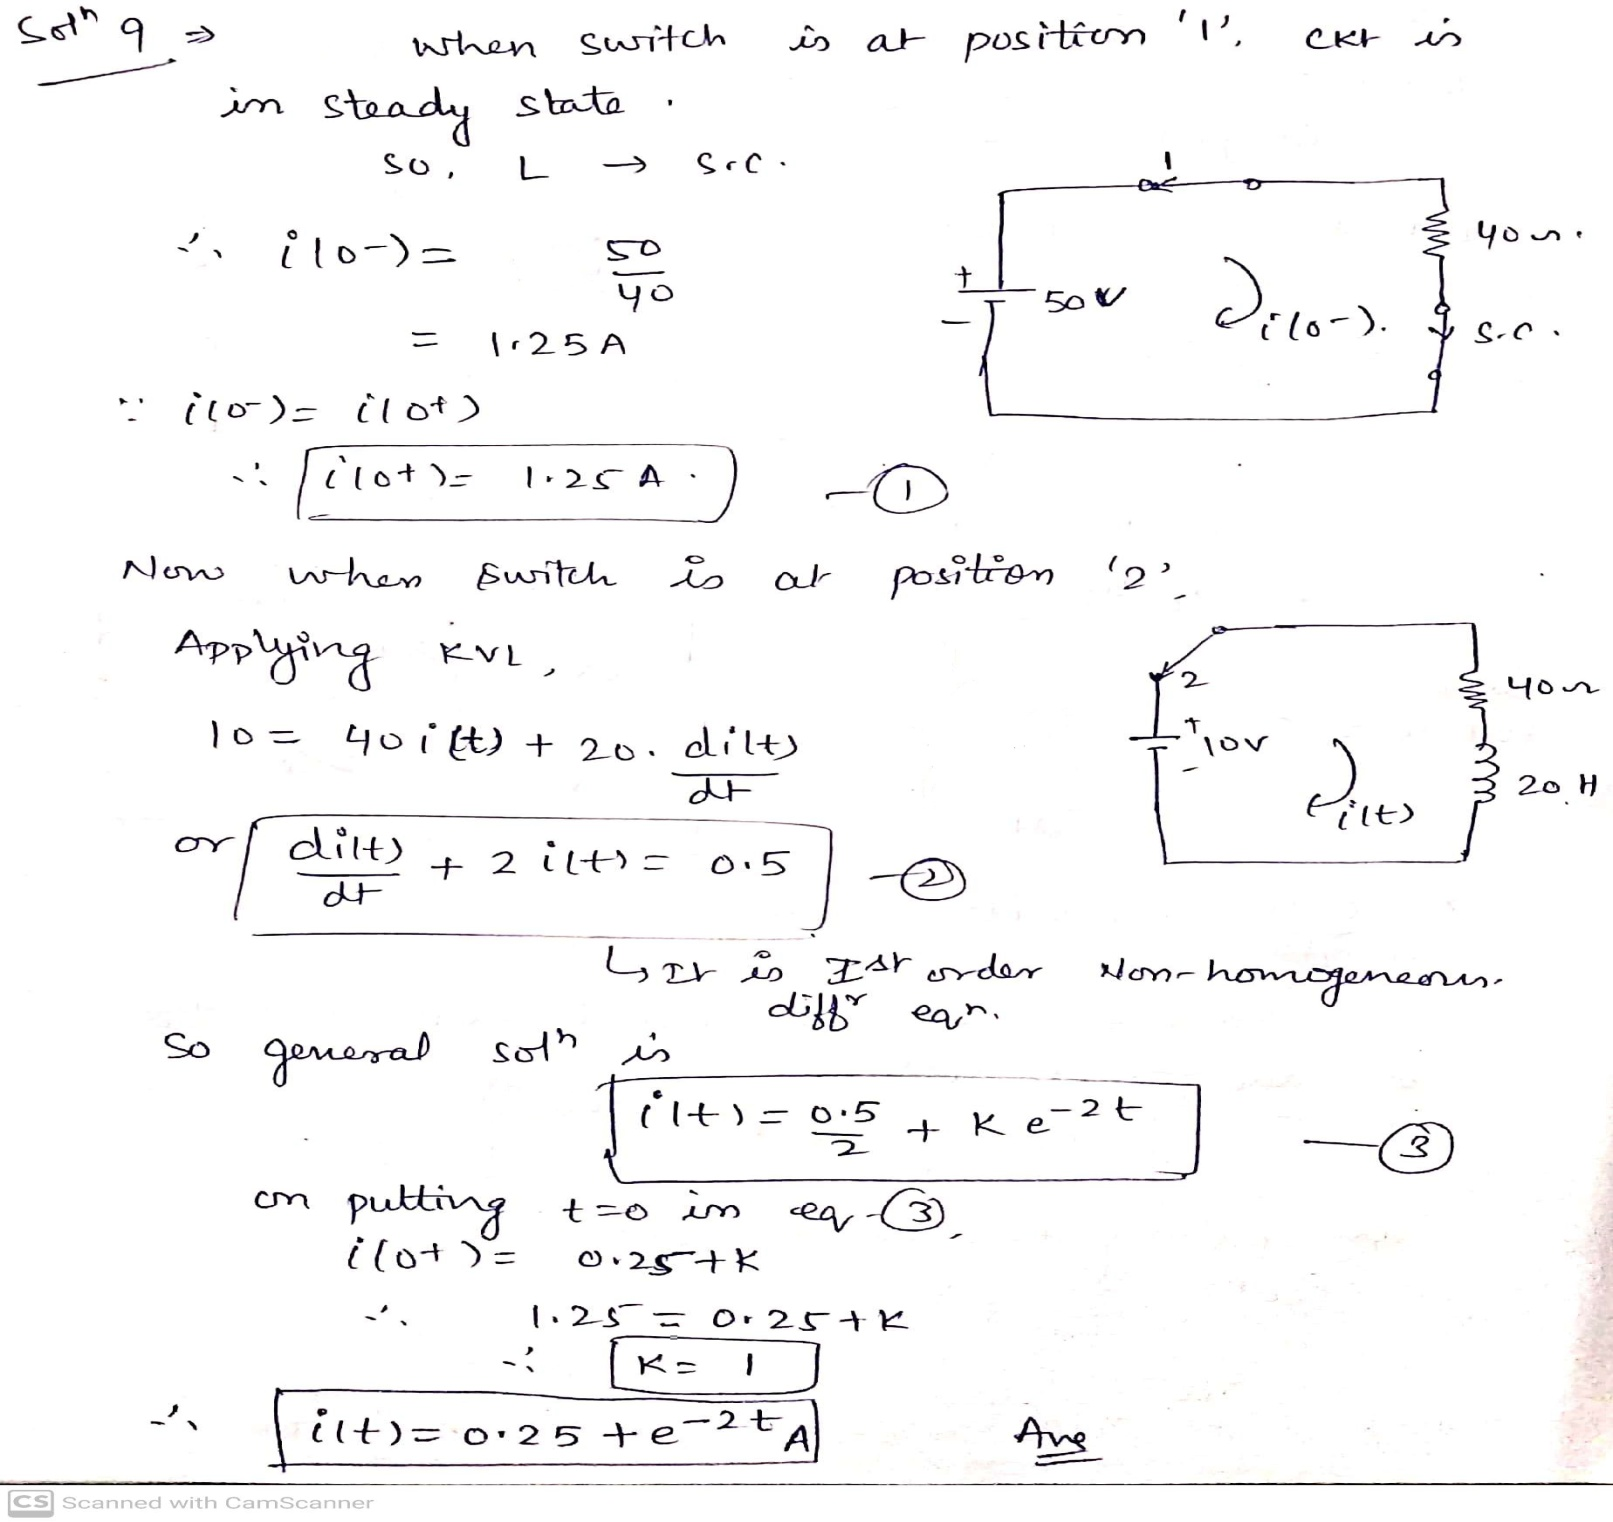 Solⁿ 9 ⇒ when switch is at position '1', ckt is
in steady state .
so, L → S.C.
∴ i(0-) = 50/40
= 1.25A
∵ i(0-) = i(0+)
∴ i(0+) = 1.25 A . —①
1
+
-
50V
i(0-).
40Ω.
S.C.
Now when switch is at position '2',
Applying KVL,
10 = 40 i(t) + 20. di(t)/dt
or di(t)/dt + 2 i(t) = 0.5 —②
2
+
-
10V
i(t)
40Ω
20 H
↳ It is Ist order Non-homogeneous.
diffʳ eqn.
So general solⁿ is
i(t) = 0.5/2 + K e^-2t —③
on putting t=0 in eq-③,
i(0+) = 0.25+K
∴ 1.25 = 0.25+K
∴ K = 1
∴ i(t) = 0.25 + e^-2t A Ans
CS Scanned with CamScanner